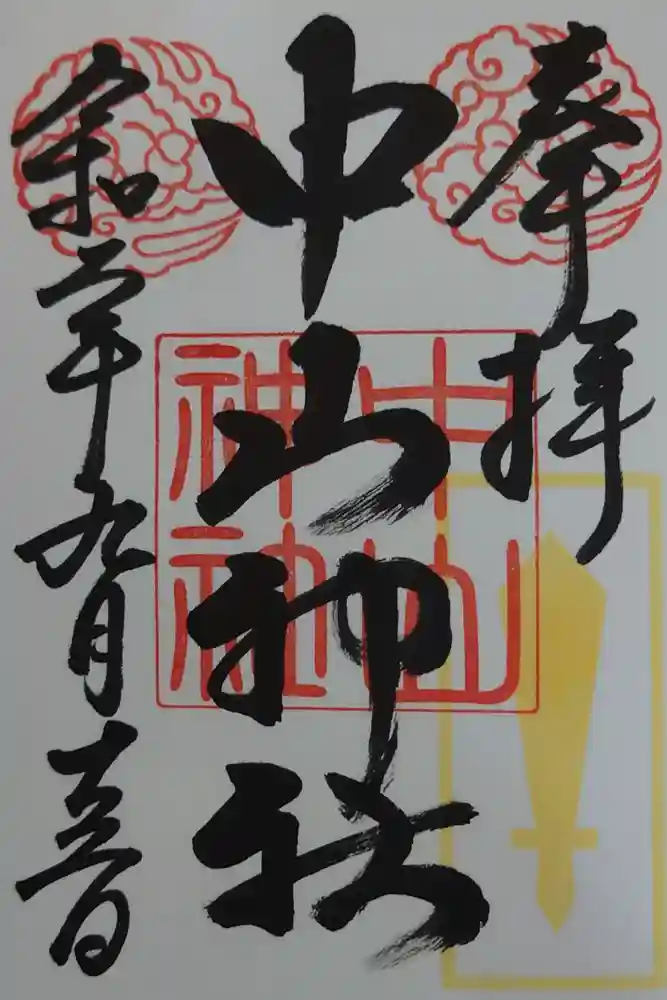 奉拝
中山神社
令和二年九月十五日
中山
神社